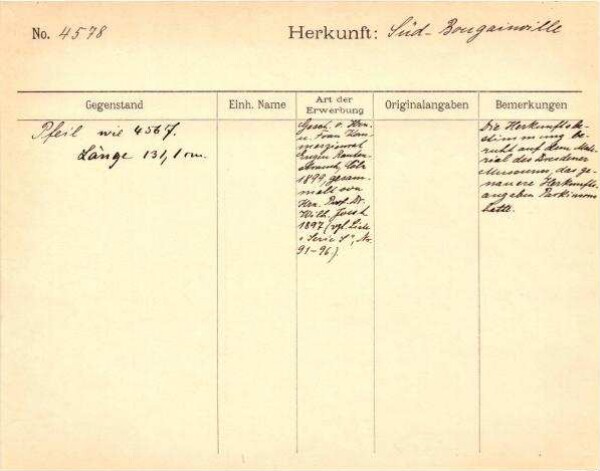 No. 4578
Herkunft: Süd-Bougainville
Gegenstand
Einh. Name
Art der Erwerbung
Originalangaben
Bemerkungen
Pfeil wie 4567.
Länge 131,1 cm.
Gesch. v. Herrn
u. Frau Kom-
merzienrat
Eugen Rauten-
strauch, Cöln
1899, gesam-
melt von
Herr Prof. Dr.
Wilh. Joest
1897 (vgl. Liste
"Serie S", No.
91-96)
Die Herkunftsbe-
stimmung be-
ruht auf dem Mate-
rial des Dresdener
Museums, das ge-
nauere Herkunfts-
angaben Parkinsons
hatte.